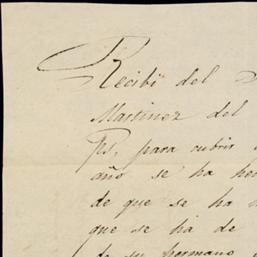 Recibi del
Martinez del
ps, para cubrir
año se ha
de que se ha
que se ha de
de su hermano